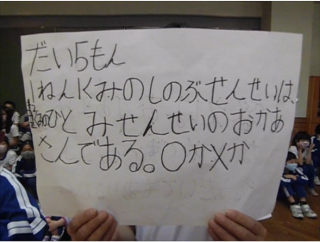 だい5もん
1ねん1くみのしのぶせんせいは、
ひとみせんせいのおかあ
さんである。○か×か